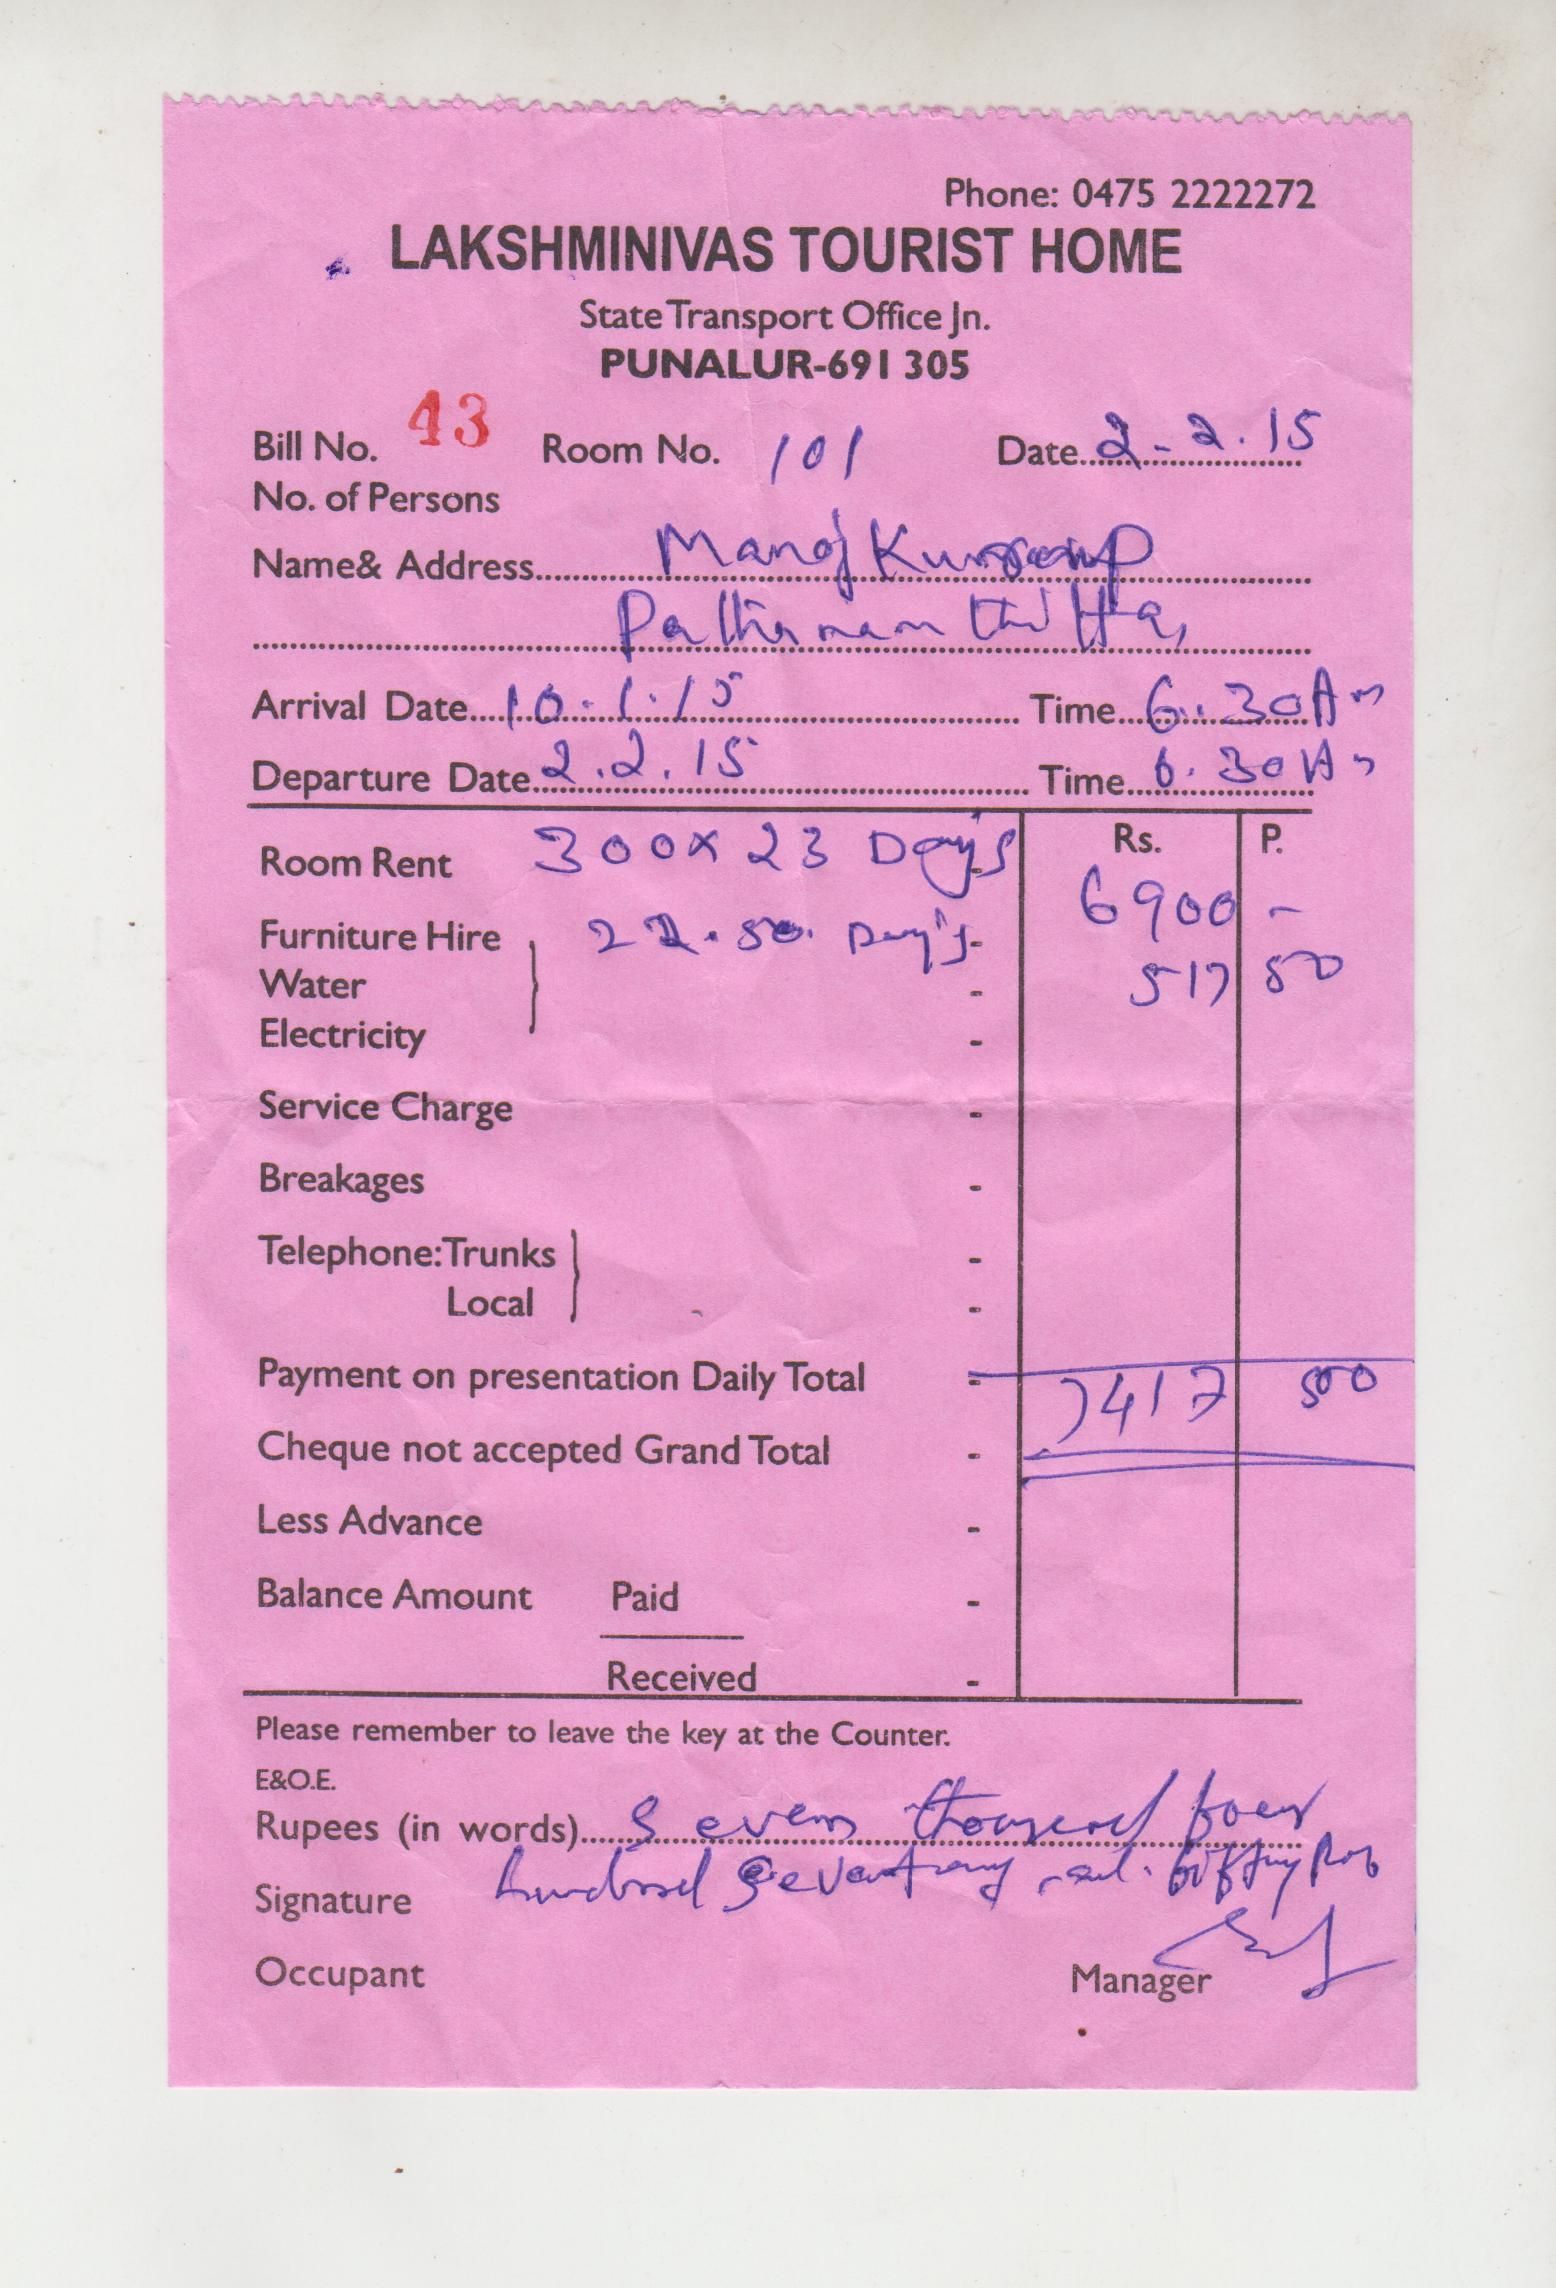 Phone: 0475 2222272
LAKSHMINIVAS TOURIST HOME
State Transport Office Jn.
PUNALUR-691 305
Bill No. 43 Room No. 101 Date 2-2.15
No. of Persons
Name& Address Manoj
Pathanamthitta,
Arrival Date 10.1.15 Time 6.30Am
Departure Date 2.2.15 Time 6.30Am
Rs. P.
Room Rent 300x23 Day's - 6900 -
Furniture Hire 22.50. Day's -
Water - 517 50
Electricity -
Service Charge -
Breakages -
Telephone:Trunks -
Local -
Payment on presentation Daily Total - 7417 50
Cheque not accepted Grand Total -
Less Advance -
Balance Amount Paid -
Received -
Please remember to leave the key at the Counter.
E&O.E.
Rupees (in words) Seven thousand four
hundred
Signature
Occupant Manager